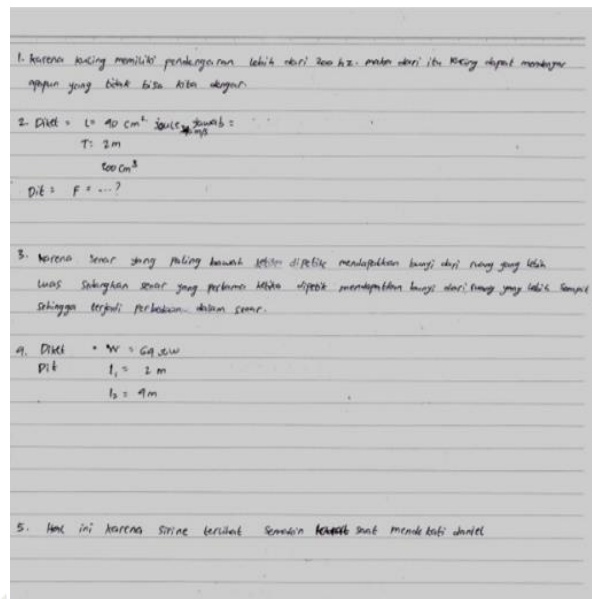 1. Karena kucing memiliki pendengaran lebih dari 200 hz. maka dari itu kucing dapat mendengar
apapun yang tidak bisa kita dengar.
2. Diket = L= 90 cm² joule jawab =
m/s
T: 2m
200 cm³
Dit = F = ...?
3. Karena senar yang paling bawah ketika dipetik mendapatkan bunyi dari ruang yang lebih
luas sedangkan senar yang pertama ketika dipetik mendapatkan bunyi dari ruang yang lebih sempit
sehingga terjadi perbedaan dalam senar.
4. Diket • W = 64
Dit l₁ = 2 m
l₂ = 4m
5. Hal ini karena sirine terlihat semakin saat mendekati daniel